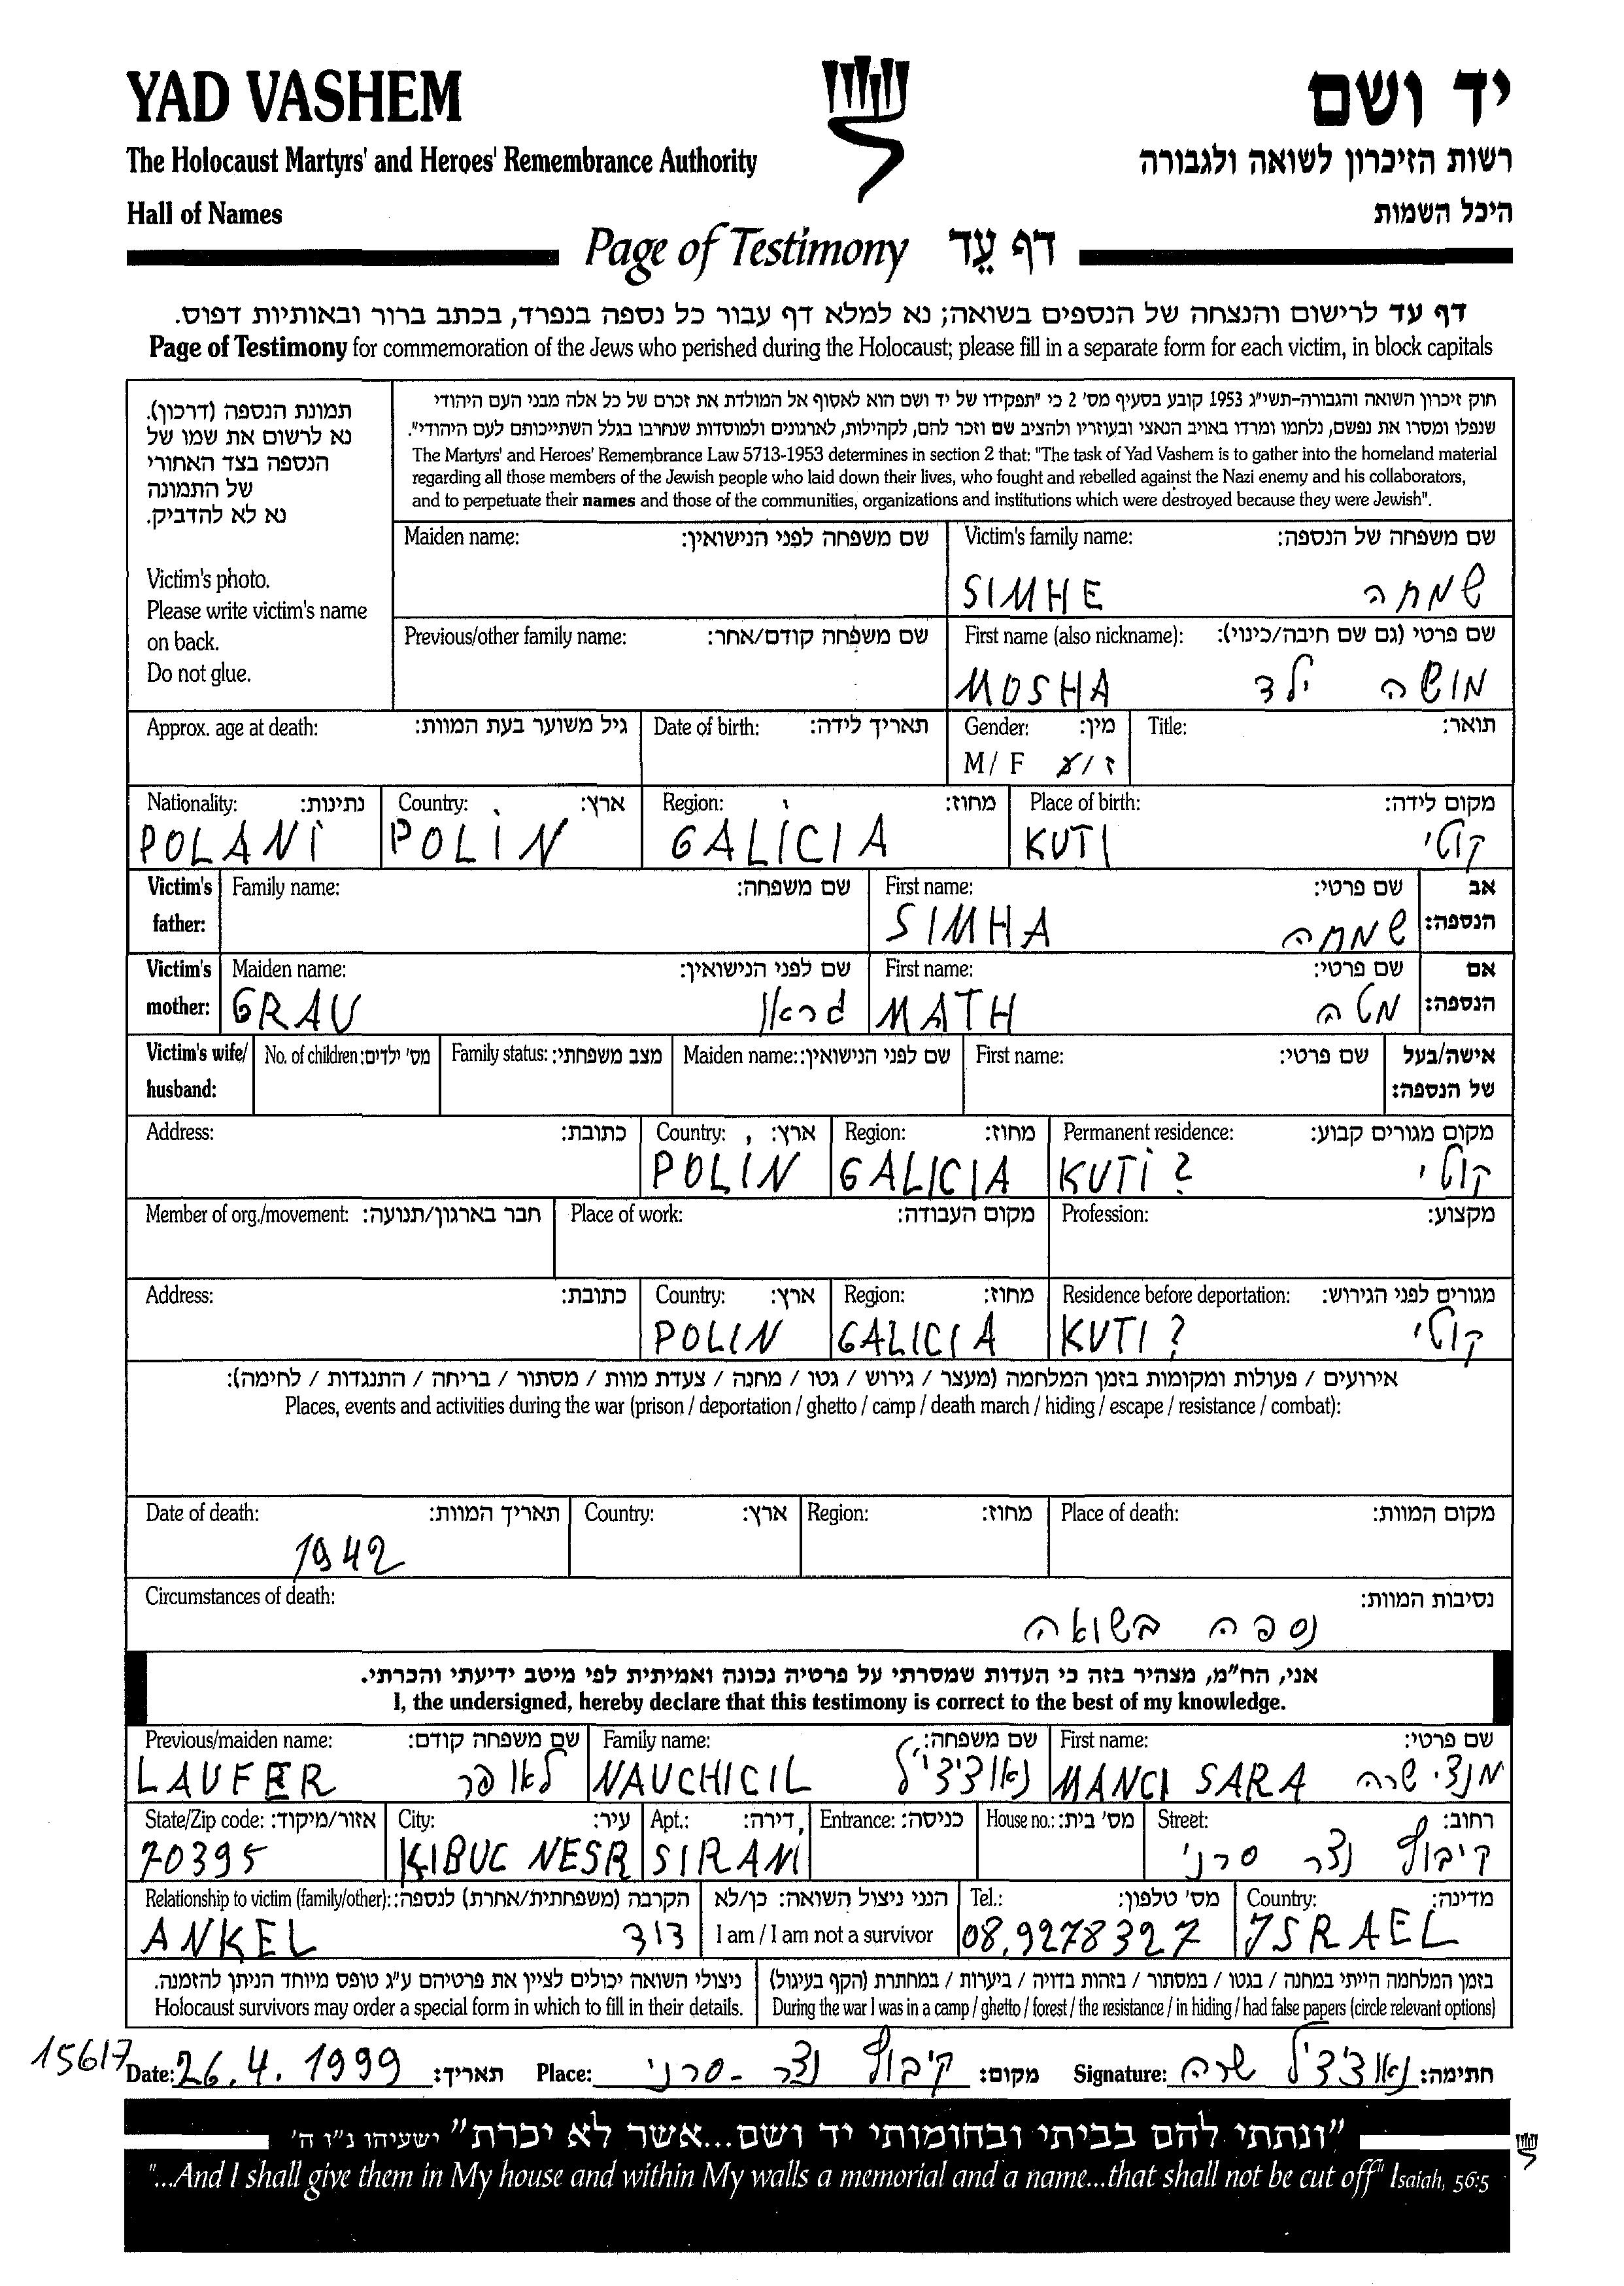 YAD VASHEM
יד ושם
The Holocaust Martyrs' and Heroes' Remembrance Authority
רשות הזיכרון לשואה ולגבורה
Hall of Names
היכל השמות
Page of Testimony דף עֵד
דף עד לרישום והנצחה של הנספים בשואה; נא למלא דף עבור כל נספה בנפרד, בכתב ברור ובאותיות דפוס.
Page of Testimony for commemoration of the Jews who perished during the Holocaust; please fill in a separate form for each victim, in block capitals
תמונת הנספה (דרכון).
נא לרשום את שמו של
הנספה בצד האחורי
של התמונה
נא לא להדביק.
Victim's photo.
Please write victim's name
on back.
Do not glue.
חוק זיכרון השואה והגבורה-תשי"ג 1953 קובע בסעיף מס' 2 כי "תפקידו של יד ושם הוא לאסוף אל המולדת את זכרם של כל אלה מבני העם היהודי
שנפלו ומסרו את נפשם, נלחמו ומרדו באויב הנאצי ובעוזריו ולהציב שם וזכר להם, לקהילות, לארגונים ולמוסדות שנחרבו בגלל השתייכותם לעם היהודי".
The Martyrs' and Heroes' Remembrance Law 5713-1953 determines in section 2 that: "The task of Yad Vashem is to gather into the homeland material
regarding all those members of the Jewish people who laid down their lives, who fought and rebelled against the Nazi enemy and his collaborators,
and to perpetuate their names and those of the communities, organizations and institutions which were destroyed because they were Jewish".
Maiden name: שם משפחה לפני הנישואין: Victim's family name: שם משפחה של הנספה:
SIMHE שמחה
Previous/other family name: שם משפחה קודם/אחר: First name (also nickname): שם פרטי (גם שם חיבה/כינוי):
MOSHA מושה ילד
Approx. age at death: גיל משוער בעת המוות: Date of birth: תאריך לידה: Gender: מין: Title: תואר:
M / F ז / נ
Nationality: נתינות: Country: ארץ: Region: מחוז: Place of birth: מקום לידה:
POLANI POLIN GALICIA KUTI קוטי
Victim's father: Family name: שם משפחה: First name: שם פרטי: אב הנספה:
SIMHA שמחה
Victim's mother: Maiden name: שם לפני הנישואין: First name: שם פרטי: אם הנספה:
GRAU גראו MATH מטה
Victim's wife/ husband: No. of children: מס' ילדים: Family status: מצב משפחתי: Maiden name: שם לפני הנישואין: First name: שם פרטי: אישה/בעל של הנספה:
Address: כתובת: Country: ארץ: Region: מחוז: Permanent residence: מקום מגורים קבוע:
POLIN GALICIA KUTI ? קוטי
Member of org./movement: חבר בארגון/תנועה: Place of work: מקום העבודה: Profession: מקצוע:
Address: כתובת: Country: ארץ: Region: מחוז: Residence before deportation: מגורים לפני הגירוש:
POLIN GALICIA KUTI ? קוטי
אירועים / פעולות ומקומות בזמן המלחמה (מעצר / גירוש / גטו / מחנה / צעדת מוות / מסתור / בריחה / התנגדות / לחימה):
Places, events and activities during the war (prison / deportation / ghetto / camp / death march / hiding / escape / resistance / combat):
Date of death: תאריך המוות: Country: ארץ: Region: מחוז: Place of death: מקום המוות:
1942
Circumstances of death: נסיבות המוות:
נספה בשואה
אני, הח"מ, מצהיר בזה כי העדות שמסרתי על פרטיה נכונה ואמיתית לפי מיטב ידיעתי והכרתי.
I, the undersigned, hereby declare that this testimony is correct to the best of my knowledge.
Previous/maiden name: שם משפחה קודם: Family name: שם משפחה: First name: שם פרטי:
LAUFER לאופר NAUCHICIL נאוציציל MANCI SARA מנצי שרה
State/Zip code: אזור/מיקוד: City: עיר: Apt.: דירה: Entrance: כניסה: House no.: מס' בית: Street: רחוב:
70395 KIBUC NESR SIRANI קיבוץ נצר סרני
Relationship to victim (family/other): הקרבה (משפחתית/אחרת) לנספה: הנני ניצול השואה: כן/לא Tel.: מס' טלפון: Country: מדינה:
ANKEL דוד I am / I am not a survivor 08.9278327 ISRAEL
ניצולי השואה יכולים לציין את פרטיהם ע"ג טופס מיוחד הניתן להזמנה. בזמן המלחמה הייתי במחנה / בגטו / במסתור / בזהות בדויה / ביערות / במחתרת (הקף בעיגול)
Holocaust survivors may order a special form in which to fill in their details. During the war I was in a camp / ghetto / forest / the resistance / in hiding / had false papers (circle relevant options)
15617 Date: 26.4.1999 תאריך: Place: קיבוץ נצר - סרני מקום: Signature: נאוציציל שרה חתימה:
"ונתתי להם בביתי ובחומותי יד ושם...אשר לא יכרת" ישעיהו נ"ו ה'
"...And I shall give them in My house and within My walls a memorial and a name...that shall not be cut off" Isaiah, 56:5